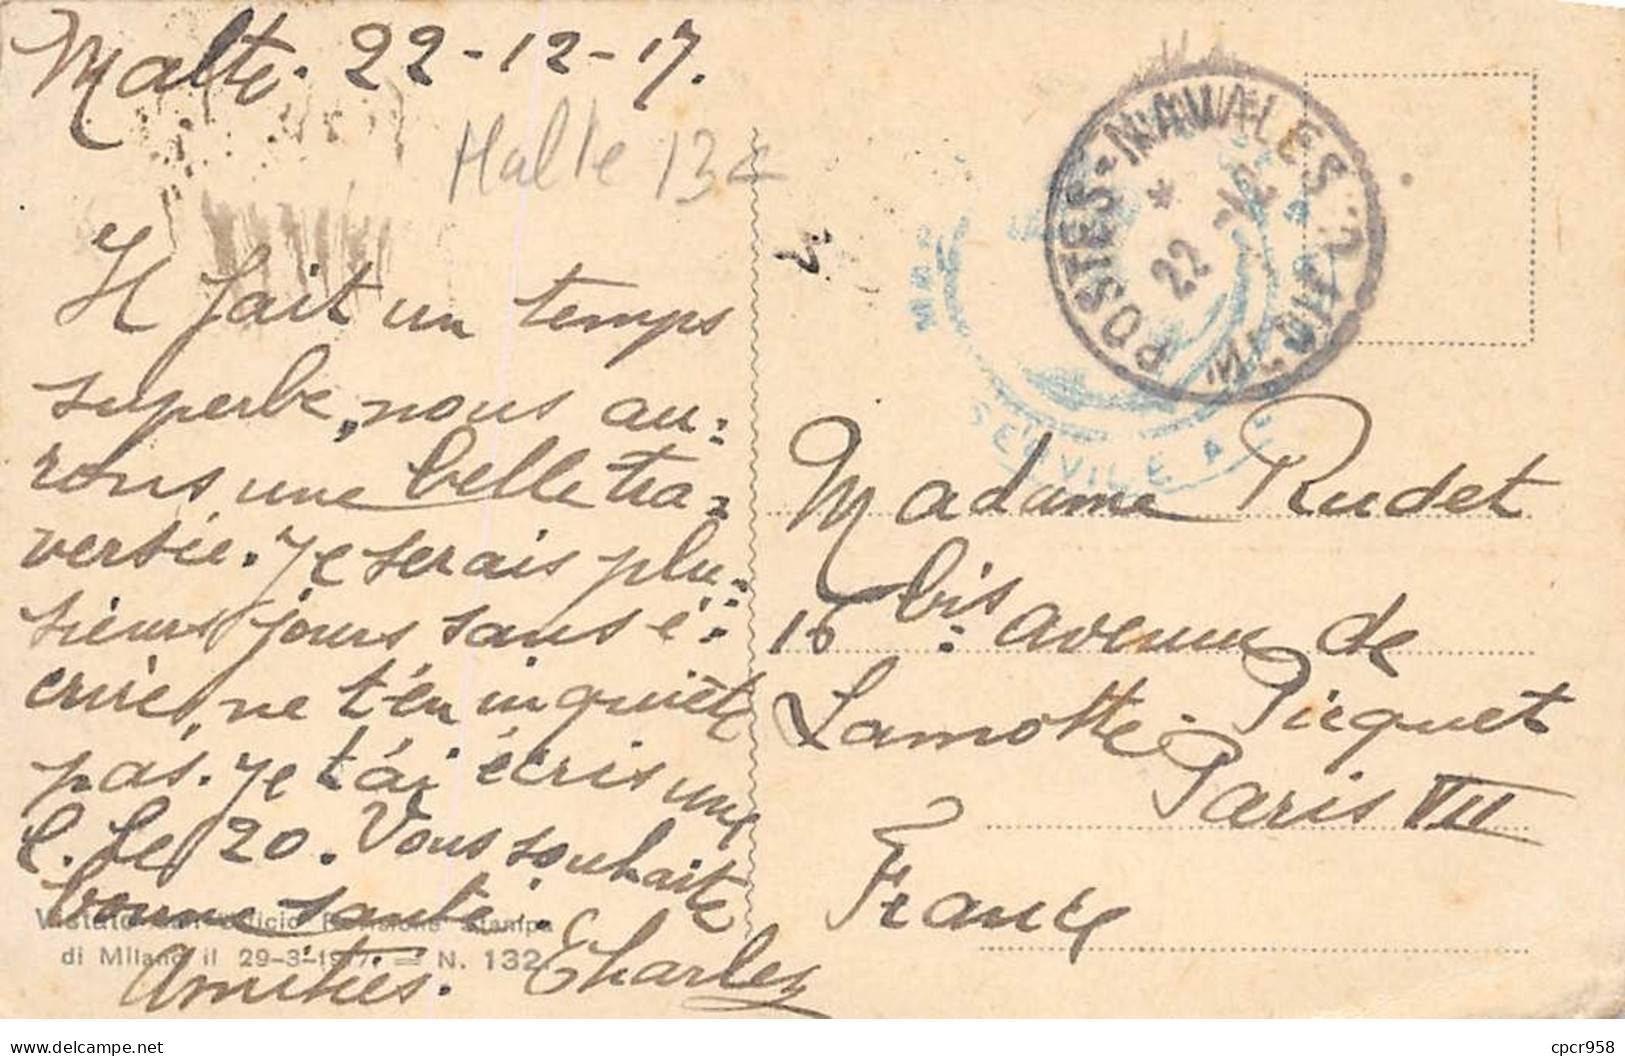 Malte. 22-12-17.
Malte 134
Il fait un temps
superbe, nous au-
rons une belle tra-
versée. Je serais plu-
sieurs jours sans é-
crire, ne t'en inquiète
pas. Je t'ai écris une
l. le 20. Vous souhaite
bonne santé.
Amitiés. Charles
Vistato dall'Ufficio Revisione Stampa
di Milano il 29-3-1917. = N. 132
POSTES-NAVALES
22 -12
SERVICE A
Madame Rudet
16 bis avenue de
Lamotte-Picquet
Paris VII
France
cpcr958